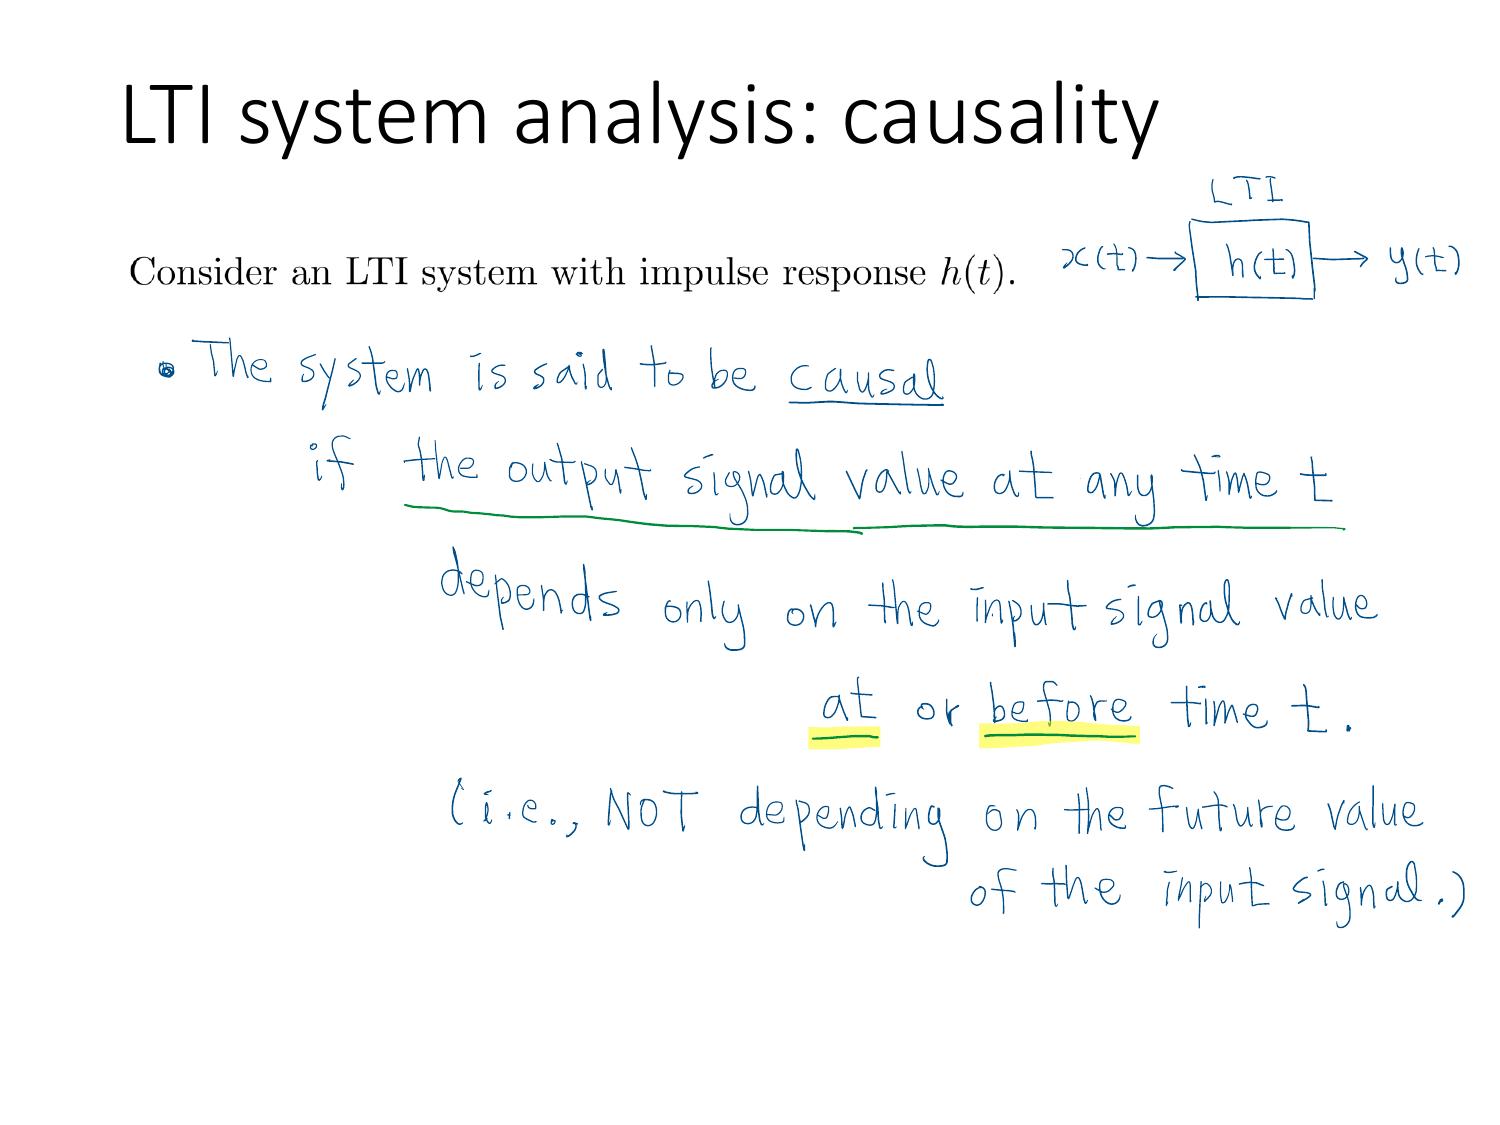 LTI system analysis: causality
LTI
Consider an LTI system with impulse response h(t).
x(t) → h(t) → y(t)
• The system is said to be causal
if the output signal value at any time t
depends only on the input signal value
at or before time t.
(i.e., NOT depending on the future value
of the input signal.)